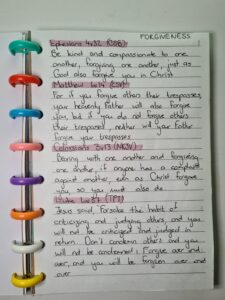 FORGIVENESS
Ephesians 4v32 (CSB)
Be kind and compassionate to one
another, forgiving one another, just as
God also forgave you in Christ
Matthew 6v14 (ESV)
For if you forgive others their trespasses,
your heavenly Father will also forgive
you, but if you do not forgive others
their trespasses, neither will your Father
forgive your trespasses
Colossians 3v13 (NKJV)
Bearing with one another and forgiving
one another, if anyone has a complaint
against another, even as Christ forgave
you so you must also do
Luke 6v37 (TPT)
Jesus said, Forsake the habit of
criticizing and judging others, and you
will not be criticized and judged in
return. Don't condemn others and you
will not be condemned. Forgive over and
over, and you will be forgiven over and
over